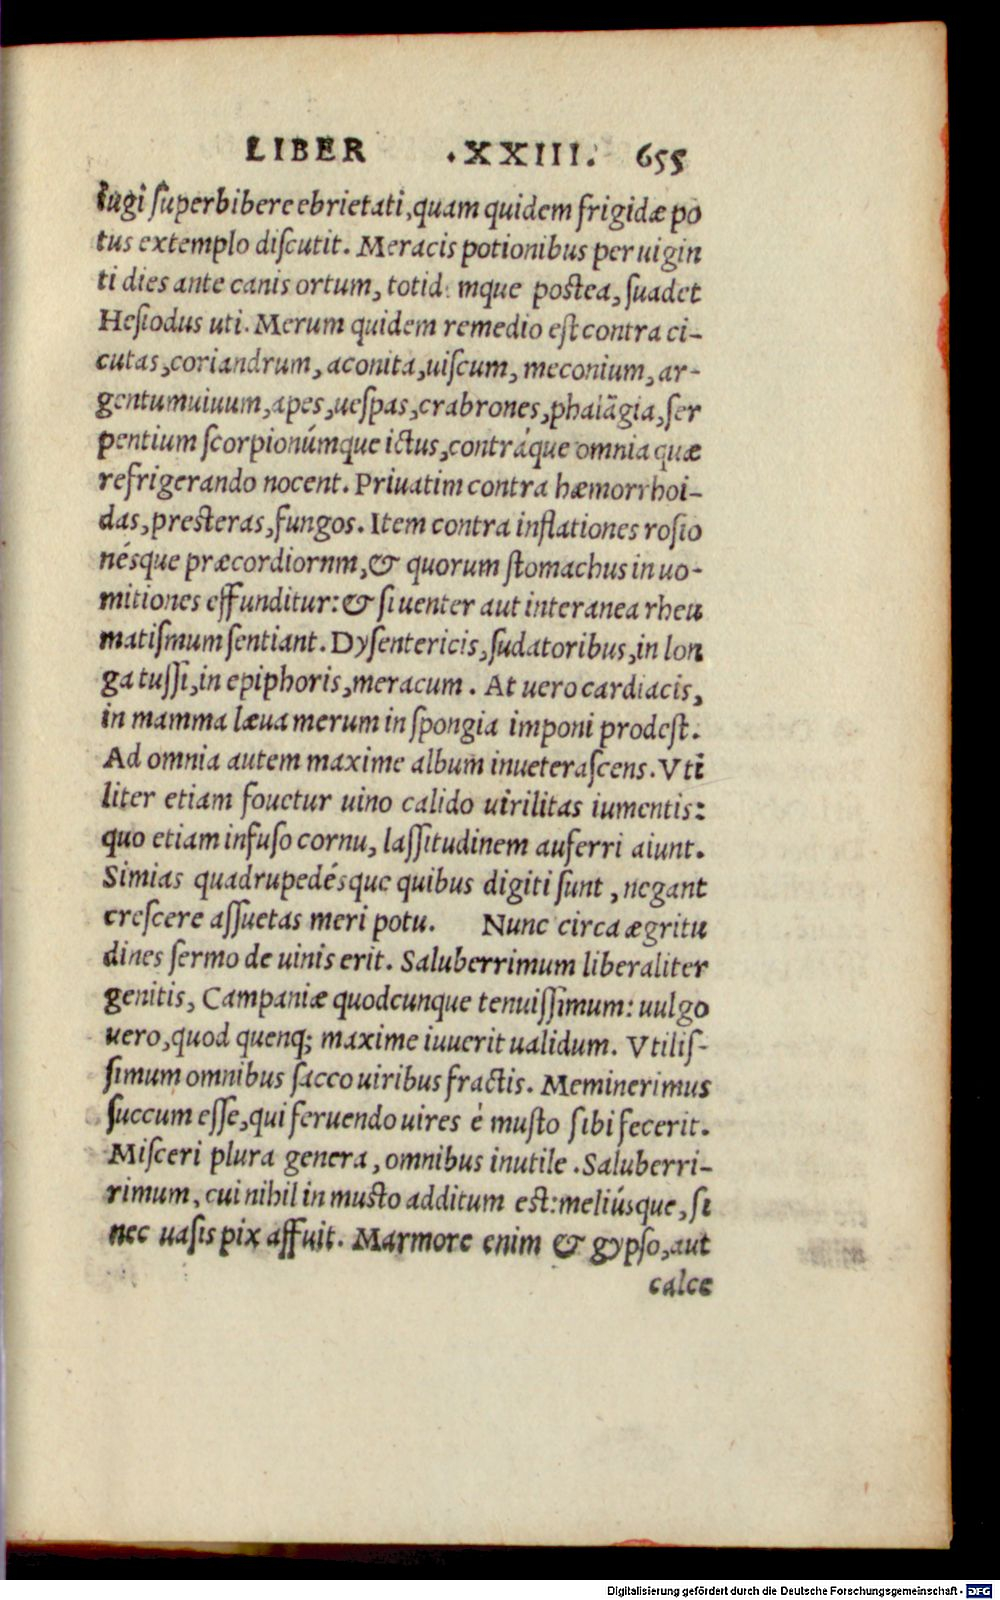 LIBER .XXIII. 655
iugi superbibere ebrietati,quam quidem frigidæ po
tus extemplo discutit. Meracis potionibus per uigin
ti dies ante canis ortum, totid mque postea, suadet
Hesiodus uti. Merum quidem remedio est contra ci-
cutas,coriandrum, aconita,uiscum, meconium, ar-
gentumuiuum,apes,uespas,crabrones,phalãgia,ser
pentium scorpionúmque ictus,contráque omnia quæ
refrigerando nocent. Priuatim contra hæmorrhoi-
das,presteras,fungos. Item contra inflationes rosio
nésque præcordiornm,& quorum stomachus in uo-
mitiones effunditur: & si uenter aut interanea rheu
matismum sentiant. Dysentericis,sudatoribus,in lon
ga tussi,in epiphoris,meracum. At uero cardiacis,
in mamma læua merum in spongia imponi prodest.
Ad omnia autem maxime album inueterascens. Vti
liter etiam fouetur uino calido uirilitas iumentis:
quo etiam infuso cornu, lassitudinem auferri aiunt.
Simias quadrupedésque quibus digiti sunt, negant
crescere assuetas meri potu. Nunc circa ægritu
dines sermo de uinis erit. Saluberrimum liberaliter
genitis, Campaniæ quodcunque tenuissimum: uulgo
uero,quod quenq; maxime iuuerit ualidum. Vtilis-
simum omnibus sacco uiribus fractis. Meminerimus
succum esse,qui feruendo uires è musto sibi fecerit.
Misceri plura genera, omnibus inutile. Saluberri-
rimum, cui nihil in musto additum est: meliúsque, si
nec uasis pix affuit. Marmore enim & gypso,aut
calce
Digitalisierung gefördert durch die Deutsche Forschungsgemeinschaft - DFG